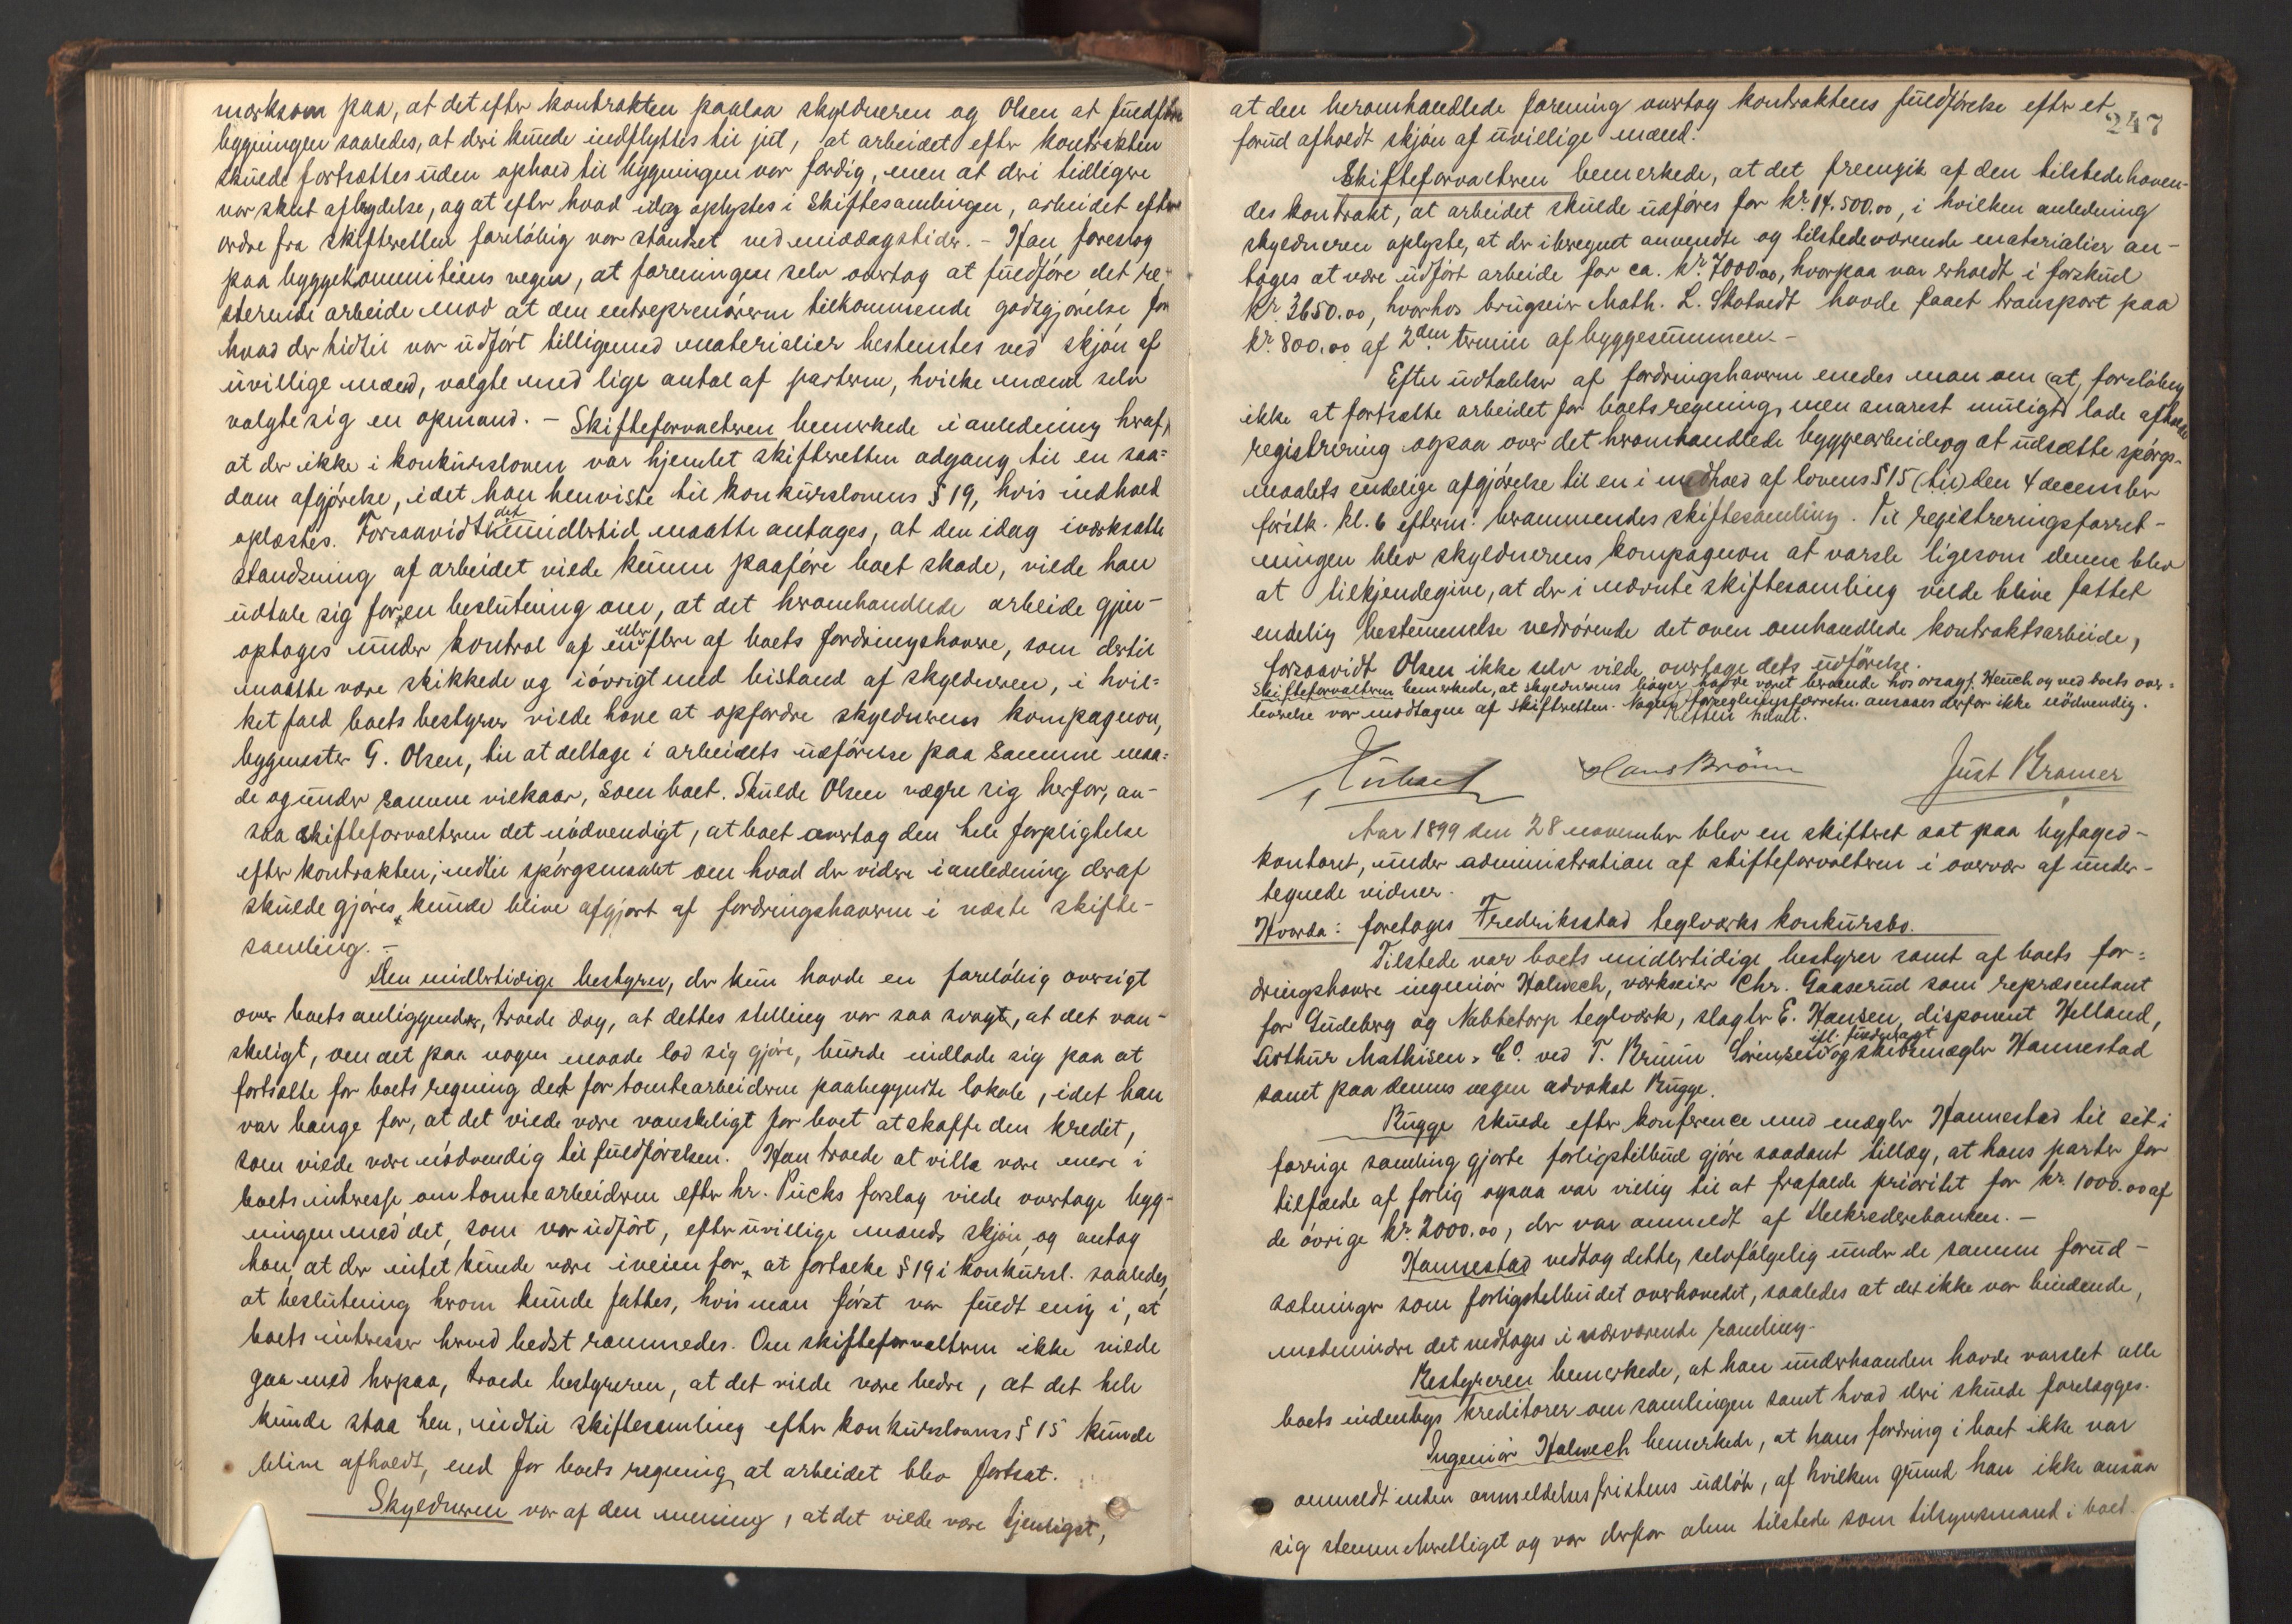 merksom paa, at det efter kontrakten paalaa skyldneren og Olsen at fuldføre
bygningen saaledes, at deri kunde indflyttes til jul, at arbeidet efter kontrakten
skulde fortsættes uden ophold til bygningen var færdig, men at deri tidligere
var skeet afbrydelse, og at efter hvad idag oplystes i skiftesamlingen, arbeidet efter
ordre fra skifteretten foreløbig var standset ved middagstider. - Han foreslog
paa byggekommiteens vegne, at foreningen selv overtog at fuldføre det re-
sterende arbeide mod at den entreprenørerne tilkommende godtgjørelse for
hvad der hidtil var udført tilligemed materialier bestemtes ved skjøn af
uvillige mænd, valgte med lige antal af parterne, hvilke mænd selv
valgte sig en opmand. - Skifteforvalteren bemerkede i anledning heraf,
at der ikke i konkursloven var hjemlet skifteretten adgang til en saa=
dan afgjørelse, idet han henviste til konkurslovens § 19, hvis indhold
oplæstes. Forsaavidt det imidlertid maatte antages, at den idag iværksatte
standsning af arbeidet vilde kunne paaføre boet skade, vilde han
udtale sig for en beslutning om, at det heromhandlede arbeide gjen-
optages under kontrol af en eller flere af boets fordringshavere, som dertil
maatte være skikkede og iøvrigt med bistand af skyldneren, i hvil=
ket fald boets bestyrer vilde have at opfordre skyldnerens kompagnon,
bygmester G. Olsen, til at deltage i arbeidets udførelse paa samme maa=
de og under samme vilkaar, som boet. Skulde Olsen vægre sig herfor, an-
saa skifteforvalteren det nødvendigt, at boet overtog den hele forpligtelse
efter kontrakten, indtil spørgsmaalet om hvad der videre i anledning deraf
skulde gjøres, kunde blive afgjort af fordringshaverne i næste skifte-
samling. -
Den midlertidige bestyrer, der kun havde en foreløbig oversigt
over boets anliggender, troede dog, at dettes stilling var saa svagt, at det van-
skeligt, om det paa nogen maade lod sig gjøre, burde indlade sig paa at
fortsætte for boets regning det for tomtearbeiderne paabegyndte lokale, idet han
var bange for, at det vilde være vanskeligt for boet at skaffe den kredit,
som vilde være nødvendig til fuldførelsen. Han troede at ville være mere i
boets interesse, om tomtearbeiderne efter hr. Pucks forslag vilde overtage byg-
ningen med det, som var udført, efter uvillige mænds skjøn, og antog
han, at der intet kunde være i veien for, at fortolke § 19 i konkursl. saaledes,
at beslutning herom kunde fattes, hvis man først var fuldt enig i, at
boets interesser herved bedst rammedes. Om skifteforvalteren ikke vilde
gaa med herpaa, troede bestyreren, at det vilde være bedre, at det hele
kunde staa hen, indtil skiftesamling efter konkurslovens § 15 kunde
blive afholdt, end for boets regning at arbeidet blev fortsat.
Skyldneren var af den mening, at det vilde være tjenligst,
247
at den heromhandlede forening overtog kontraktens fuldførelse efter et
forud afholdt skjøn af uvillige mænd.
Skifteforvalteren bemerkede, at det fremgik af den tilstedehaven-
des kontrakt, at arbeidet skulde udføres for kr. 14.500.00, i hvilken anledning
skyldneren oplyste, at der iberegnet anvendte og tilstedeværende materialier an-
tages at være udført arbeide for ca. kr. 7000.00, hvorpaa var erholdt i forskud
kr. 3650.00, hvorhos brugseier Math. L. Skotvedt havde faaet transport paa
kr. 800.00 af 2den termin af byggesummen. -
Efter udtalelser af fordringshaverne enedes man om at, foreløbig
ikke at fortsætte arbeidet for boets regning, men snarest muligt lade afholde
registrering ogsaa over det heromhandlede byggearbeide og at udsætte spørgs-
maalets endelige afgjørelse til en i medhold af lovens § 15 (til) den 4 december
førstk. kl. 6 efterm. berammendes skiftesamling. Til registreringsforret-
ningen blev skyldnerens kompagnon at varsle ligesom denne blev
at tilkjendegive, at der i nævnte skiftesamling vilde blive fattet
endelig bestemmelse vedrørende det oven omhandlede kontraktsarbeide,
forsaavidt Olsen ikke selv vilde overtage dets udførelse.
Skifteforvalteren bemerkede, at skyldnerens bøger havde været beroende hos orsagf. Heuch og ved boets over=
leverelse var modtagne af skifteretten. Nogen forseglingsforretn. ansaaes derfor ikke nødvendig.
Retten hævet.
Hans Brønn Just Bramer
Aar 1899 den 28 november blev en skifteret sat paa byfoged-
kontoret, under administration af skifteforvalteren i overvær af under-
tegnede vidner.
Hvorda: foretoges Fredriksstad teglværks konkursbo.
Tilstede var boets midlertidige bestyrer samt af boets for=
dringshavere ingeniør Halvech, værkseier Chr. Gaaserud som repræsentant
for Gudeberg og Nabbetorp teglværk, slagter E. Hansen, disponent Helland,
Arthur Mathisen & Co. ved T. Bruun Sørensen ifl. fuldmagt og skibsmægler Hannestad
samt paa dennes vegne advokat Bugge.
Bugge skulde efter konference med mægler Hannestad til sit i
forrige samling gjorte forligstilbud gjøre saadant tillæg, at hans parter for
tilfælde af forlig ogsaa var villig til at frafalde prioritet for kr. 1000.00 af
de øvrige kr. 2000.00, der var anmeldt af Delkrederebanken. -
Hannestad vedtog dette, selvfølgelig under de samme forud-
sætninger som forligstilbudet overhovedet, saaledes at det ikke var bindende,
medmindre det vedtages i nærværende samling.
Bestyreren bemerkede, at han underhaanden havde varslet alle
boets indenbys kreditorer om samlingen samt hvad deri skulde forelægges.
Ingeniør Halvech bemerkede, at hans fordring i boet ikke var
anmeldt inden anmeldelsesfristens udløb, af hvilken grund han ikke ansaa
sig stemmeberettiget og var derfor alene tilstede som tilsynsmand i boet.